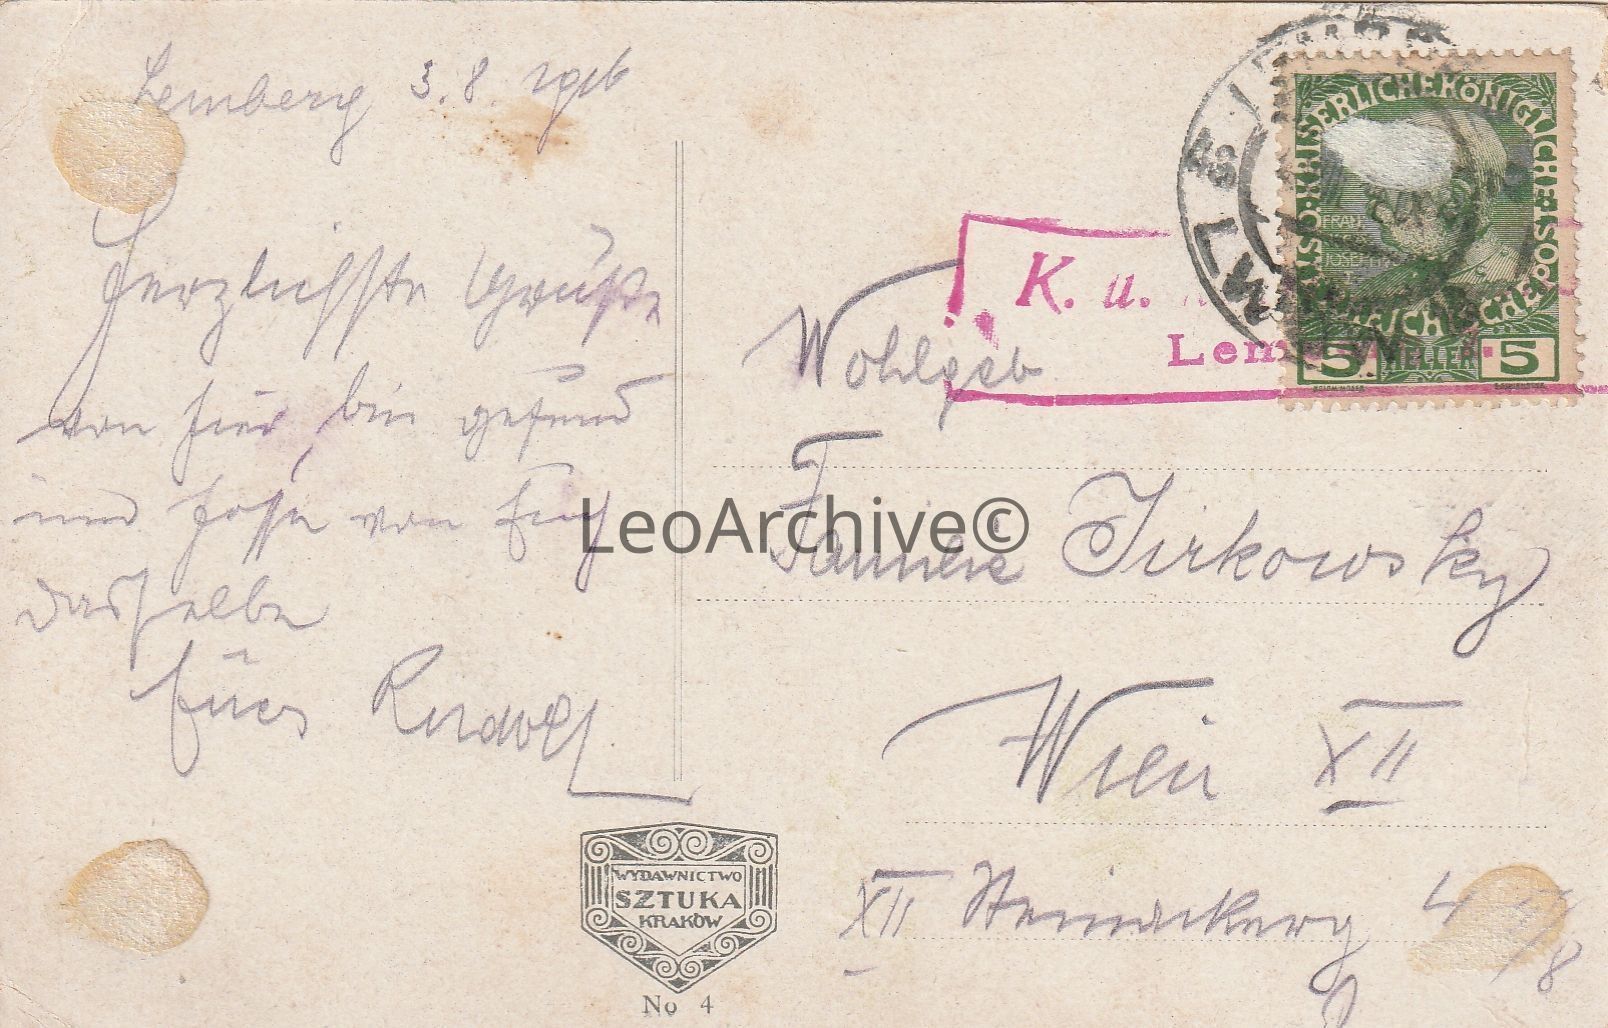 Lemberg 3.8. 1916
Herzlichste Grüße
von hier, bin gesund
und hoffe von Euch
dasselbe
Euer Rudolf
K. u.
Lem
KAISERLICHE KÖNIGLICHE ÖSTERREICHISCHE POST
FRANZ
JOSEPH
5 HELLER 5
Wohlgeb
Familie Jirkowsky
Wien XII
XII 4
8
LeoArchive©
WYDAWNICTWO
SZTUKA
KRAKÓW
No 4